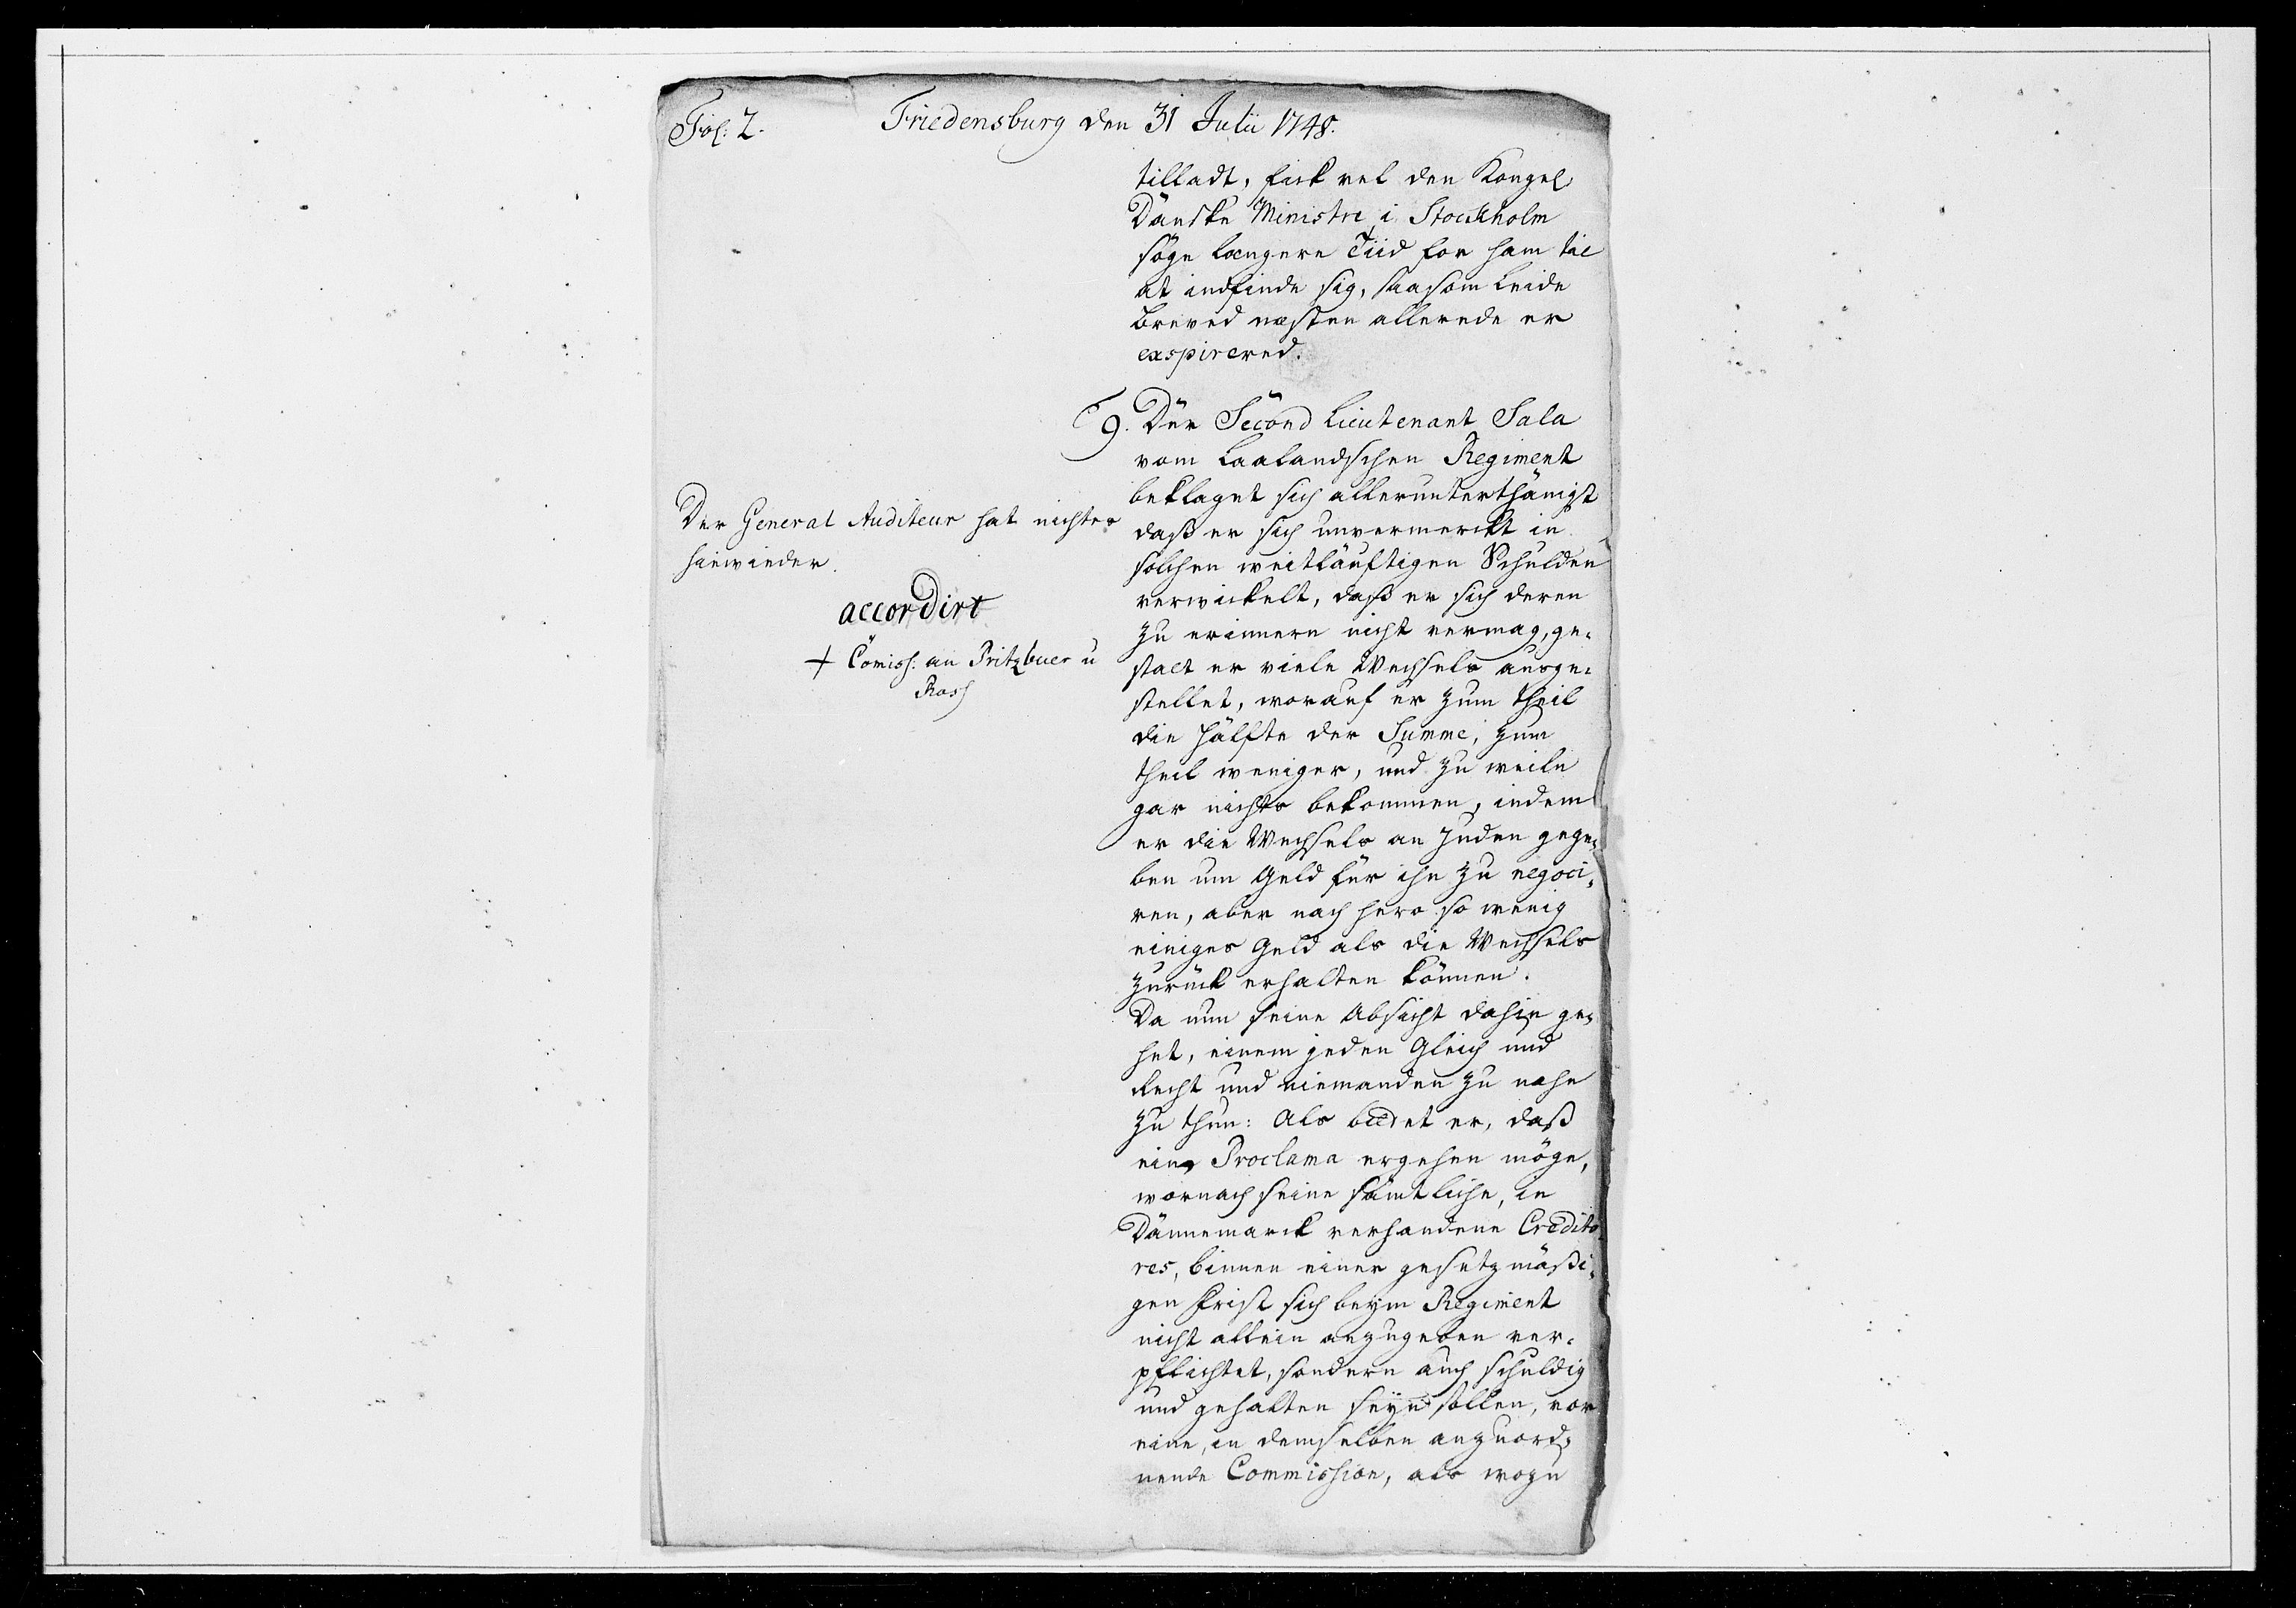 Fol: 2.
Friedensburg den 31 Julii 1748.
tilladt, fick vel den Kongel
Danske Ministre i Stockholm
söge længere Tiid for ham til
at indfinde sig, saasom Leide
Breved næsten allerede er
exspirered.
9. Der Second Lieutenant Sala
vom Laalandschen Regiment
beklaget sich allerunterthänigst
daß er sich unvermerckt in
solchen weitläuftigen Schulden
verwickelt, daß er sich deren
zu erinnern nicht vermag, ge-
stalt er viele Wechsels ausge-
stellet, worauf er zum theil
die Hälfte der Summe, zum
theil weniger, und zu weiln
gar nichts bekommen, indem
er die Wechsels an Juden gege-
ben um Geld für ihn zu negoci-
ren, aber nach hero so wenig
einiges Geld als die Wechsels
zurück erhalten können.
Da nun seine Absicht dahin ge-
het, einem jeden Gleich und
Recht und niemanden zu nahe
zu thun: Als biedet er, daß
ein Proclama ergehen möge,
wornach seine sämtliche, in
Dännemarck verhandene Credito-
res, binnen einer gesetzmäßi-
gen Frist sich beym Regiment
nicht allein anzugeben ver-
pflichtet, sondern auch schuldig
und gehalten seyn sollen, vor
eine, in demselben anzuord-
nende Commission, als wozu
Der General Auditeur hat nichts
hiewieder.
accordirt
+ Com̄iss: an Pritzbuer u
Ross